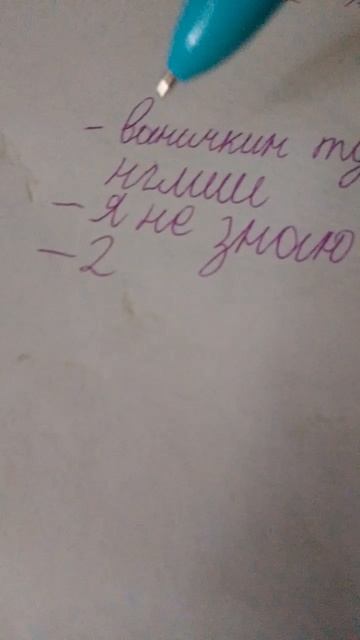 - ваничкин ту
нгмии
- я не знаю
- 2